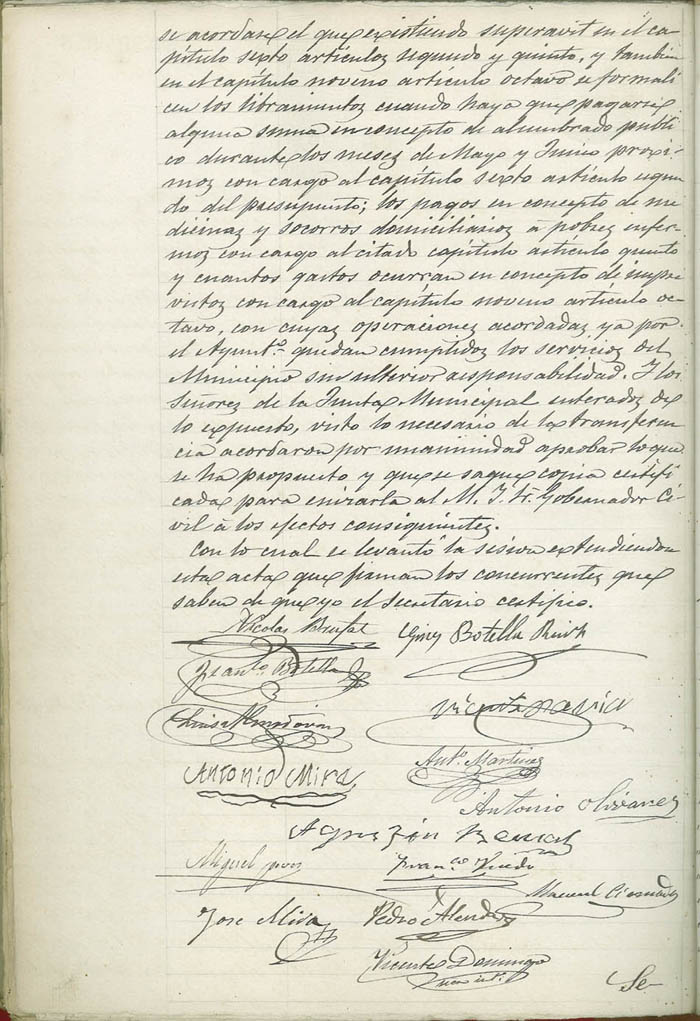 se acordase el que existiendo superavit en el ca-
pítulo sexto artículos segundo y quinto, y tambien
en el capítulo noveno artículo octavo se formali-
cen los libramientos cuando haya que pagarse
alguna suma en concepto de alumbrado públi-
co durante los meses de Mayo y Junio proxi-
mos con cargo al capítulo sexto artículo segun-
do del presupuesto; los pagos en concepto de me-
dicinas y socorros domiciliarios á pobres enfer-
mos con cargo al citado capítulo artículo quinto
y cuantos gastos ocurran en concepto de impre-
vistos con cargo al capítulo noveno artículo oc-
tavo, con cuyas operaciones acordadas ya por
el Ayunt.º quedan cumplidos los servicios del
Municipio sin ulterior responsabilidad. Y los
Señores de la Junta Municipal enterados de
lo expuesto, visto lo necesario de la transferen-
cia acordaron por unanimidad aprobar lo que
se ha propuesto y que se saque copia certifi-
cada para enviarla al M. I. Sr. Gobernador Ci-
vil á los efectos consiguientes.
Con lo cual se levantó la sesion extendiendose
esta acta que firman los concurrentes que
saben de que yo el secretario certifico.
Nicolas Brufal Gines Botella
Fran.co Botella
Vicente
Luis Almodovar
Ant.º Martinez
Antonio Mira
Antonio Olivares
Miguel
Fran.co
Manuel
Jose Mira Pedro
Vicente Domingo
Se-